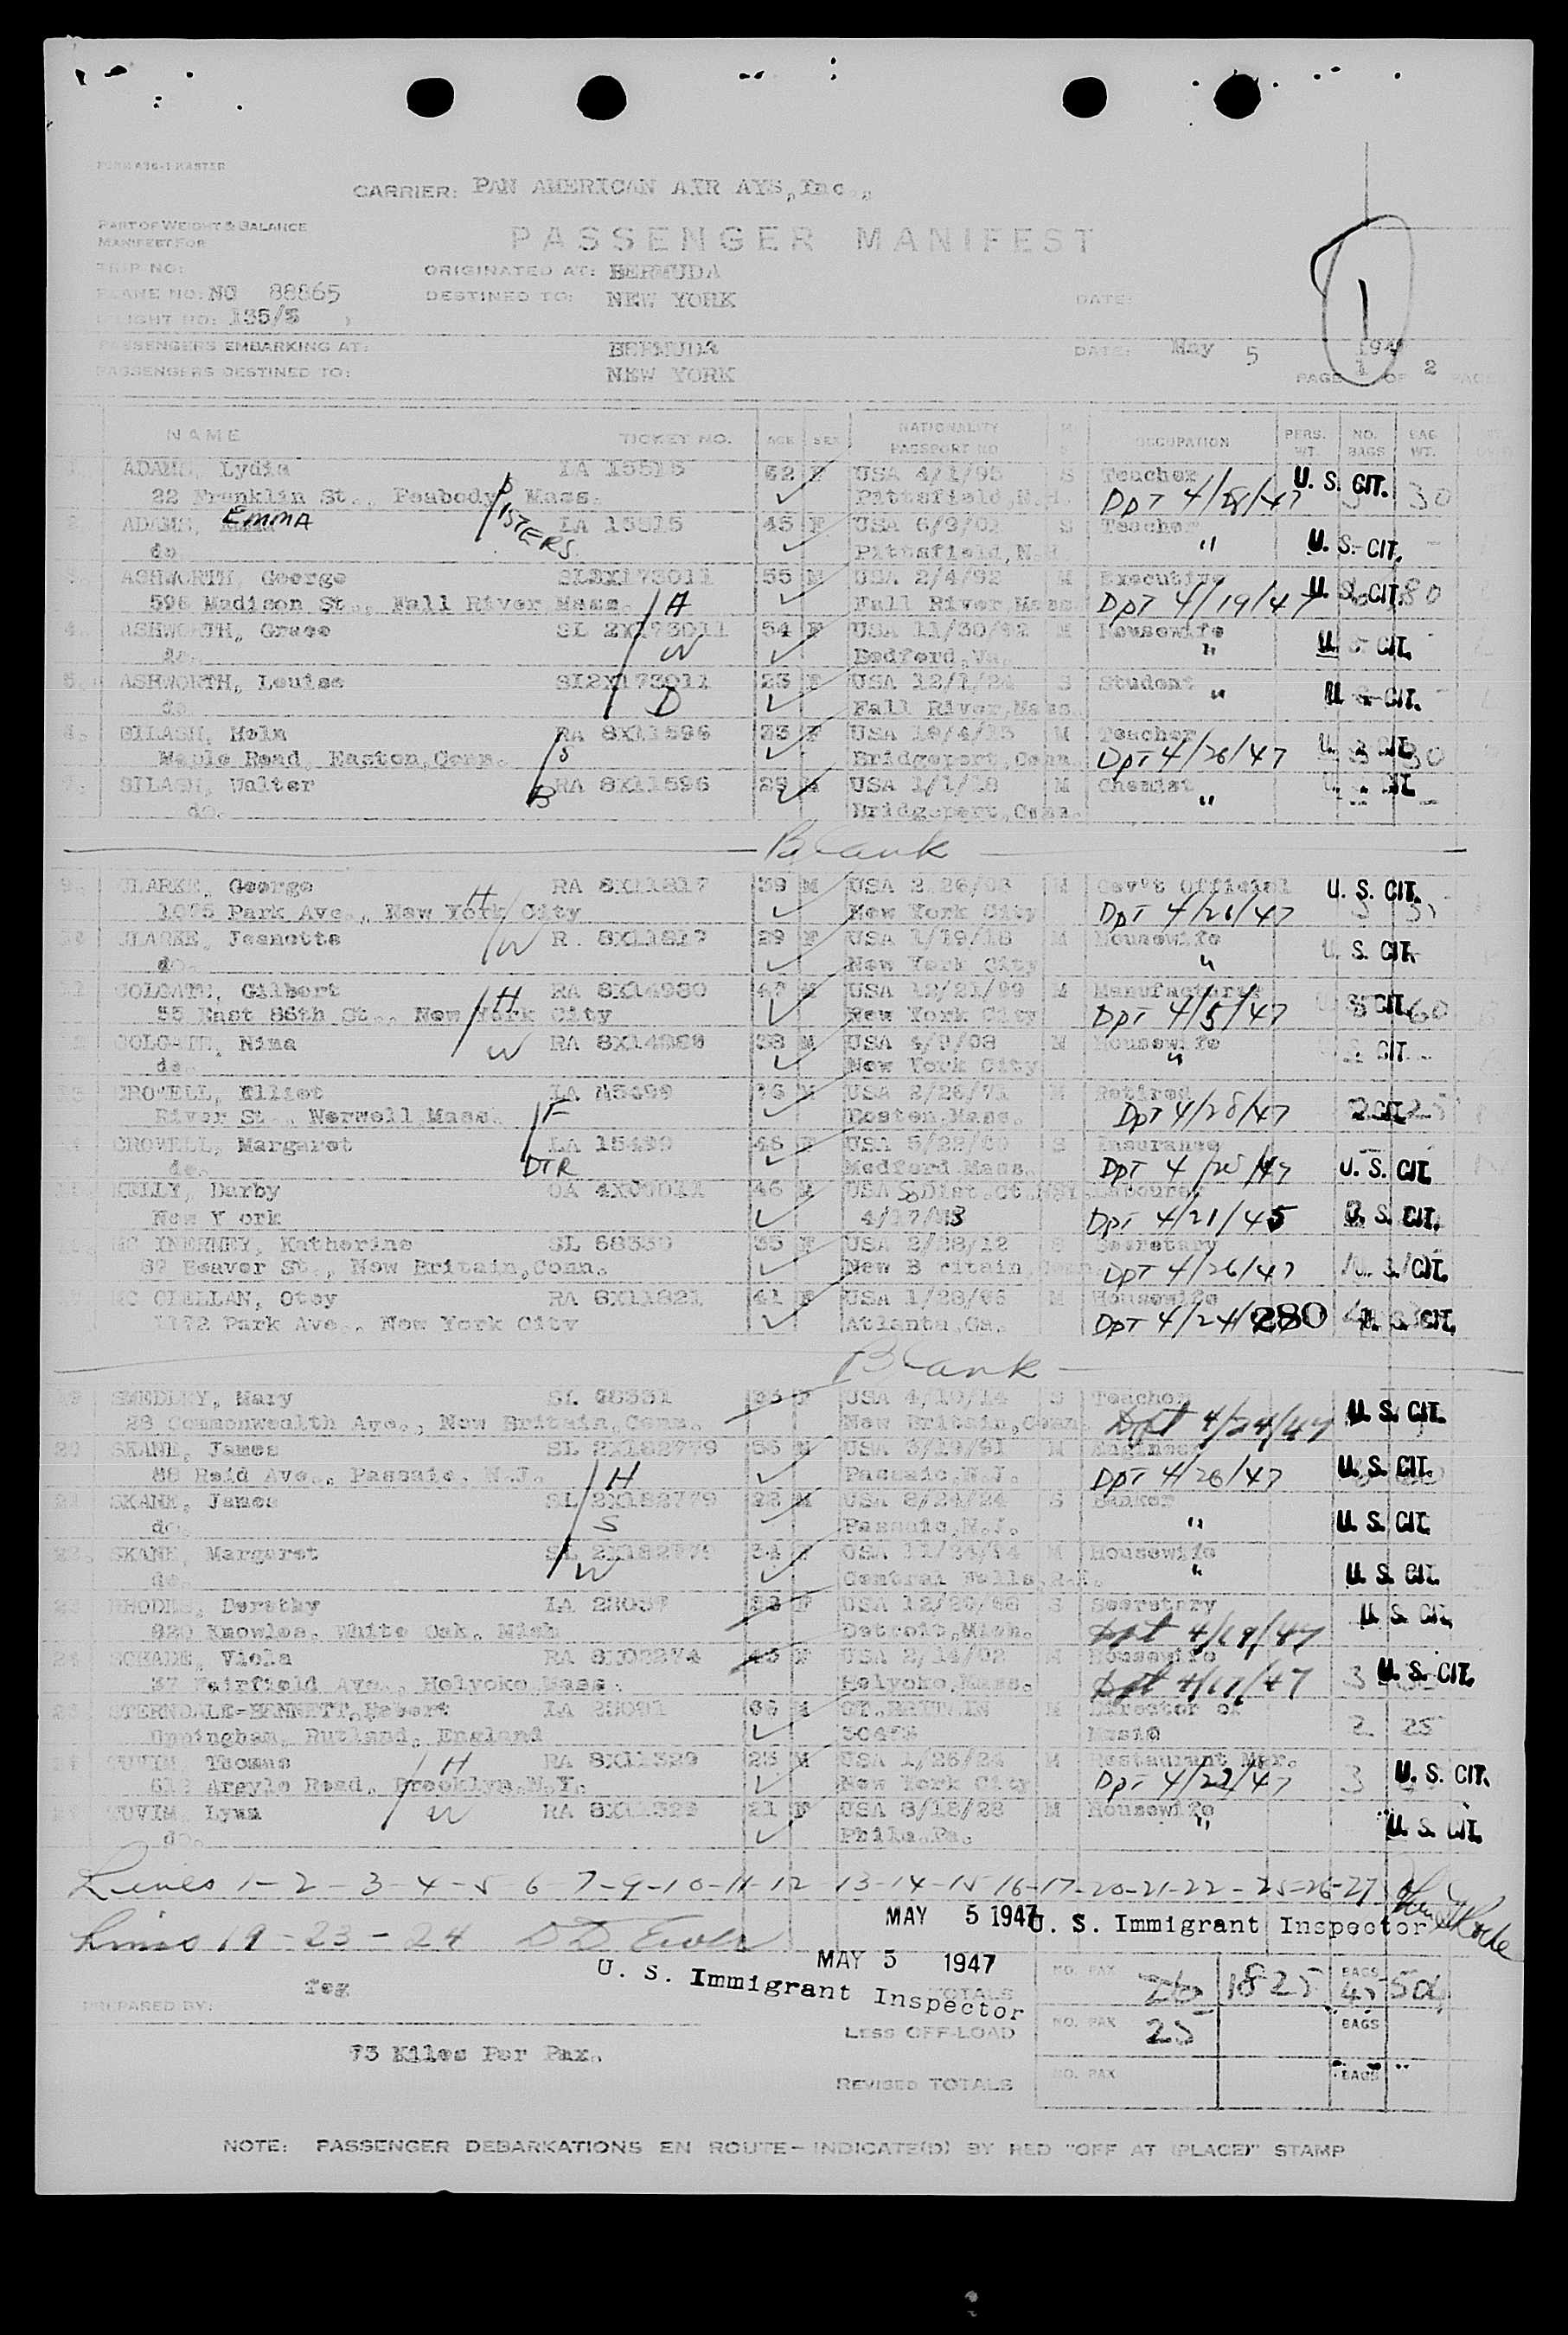 FORM A36-1 MASTER
CARRIER: PAN AMERICAN AIR AYS, Inc.,
PART OF WEIGHT & BALANCE
MANIFEST FOR
PASSENGER MANIFEST
TRIP NO:
ORIGINATED AT: BERMUDA
PLANE NO: NC 88865
DESTINED TO: NEW YORK
DATE:
FLIGHT NO: 135/5
1
PASSENGERS EMBARKING AT: BERMUDA
DATE: May 5 194
PASSENGERS DESTINED TO: NEW YORK
PAGE 1 OF 2 PAGES
NAME TICKET NO. AGE SEX NATIONALITY PASSPORT NO M S OCCUPATION PERS. WT. NO. BAGS BAG WT.
1. ADAMS, Lydia LA 15515 52 F USA 4/1/95 S Teacher U. S. CIT.
22 Franklin St., Peabody, Mass. Pittsfield, N.H. DPT 4/ /47 30
SISTERS
ADAMS, EMMA LA 15515 45 F USA 6/9/01 S Teacher U. S. CIT.
do. Pittsfield, N.H. "
3. ASHWORTH, George SL2X173011 55 M USA 2/4/92 M Executive U. S. CIT. 80
596 Madison St., Fall River Mass. H Fall River, Mass. DPT 4/19/47
4. ASHWORTH, Grace SL 2X173011 54 F USA 11/30/92 M Housewife U. S. CIT.
do. W Bedford, Va. "
5. ASHWORTH, Louise SL2X173011 23 F USA 12/1/24 S Student U. S. CIT.
do. D Fall River, Mass. "
6. Helm RA 8X11596 33 F USA M Teacher
Maple Road, Easton, Conn. S Bridgeport, Conn. DPT 4/26/47 30
7. Walter RA 8X11596 29 M USA 1/1/18 M Chemist
do. B Bridgeport, Conn. "
Blank
9. CLARKE, George H RA 8X11817 39 M USA 2 26/08 M Gov't Official U. S. CIT.
1075 Park Ave., New York City New York City DPT 4/21/47
10 CLARKE, Jeanette W R. 8X11817 29 F USA 1/19/18 M Housewife U. S. CIT.
do. New York City "
11 COLGATE, Gilbert H RA 8X14980 47 M USA 12/21/99 M Manufacturer CIT. 60
55 East 86th St., New York City New York City DPT 4/5/47
COLGATE, Nina W RA 8X14980 38 M USA 4/9/08 M Housewife CIT.
do. New York City "
CROWELL, Elliot LA 15499 76 M USA 2/26/71 M Retired
River St., Norwell Mass. F Boston, Mass. DPT 4/28/47 25
CROWELL, Margaret LA 15499 46 F USA 5/22/00 S Insurance
do. DTR Medford Mass. DPT 4/28/47 U. S. CIT.
KELLY, Darby 46 M USA So Dist. Ct. NY. Labourer
New Y ork 4/17/ DPT 4/21/45 U. S. CIT.
MC INERNEY, Katherine SL 68330 35 F USA 2/28/12 S Secretary
87 Beaver St., New Britain, Conn. New B ritain, Conn. DPT 4/26/47 U. S. CIT.
MC CLELLAN, Otey RA 8X11821 41 F USA 1/28/06 M Housewife
1172 Park Ave., New York City Atlanta, Ga. DPT 4/24/ 280 U. S. CIT.
Blank
19 SMEDLEY, Mary SL 68331 33 F USA 4/10/14 S Teacher
28 Commonwealth Ave., New Britain, Conn. New Britain, Conn. Dpt 4/24/47 U. S. CIT.
20 SKANE, James SL 2X182779 56 M USA 3/19/91 M Engineer
88 Reid Ave., Passaic, N.J. H Passaic, N.J. DPT 4/26/47 U. S. CIT.
21 SKANE, James SL 2X182779 22 M USA 8/24/24 S Banker
do. S Passaic, N.J. " U. S. CIT.
22. SKANE, Margaret SL 2X182779 54 F USA M Housewife
do. W Central Falls, R.I. " U. S. CIT.
23 RHODES, Dorothy LA 23057 F USA S Secretary
820 Knowles, White Oak, Mich Detroit, Mich. Dpt 4/19/47 U. S. CIT.
24 SCHADE, Viola RA 45 F USA 2/14/02 M Housewife
37 Fairfield Ave., Holyoke Mass. Holyoke, Mass. Dpt 4/17/47 3 U. S. CIT.
25 STERNDALE-BENNETT, Robert LA 23091 66 M GT. BRITAIN M Director of
Uppingham, Rutland, England Music 2 25
TUVIM, Thomas H RA 8X11329 23 M USA 1/26/24 M Restaurant Mgr.
612 Argyle Road, Brooklyn, N.Y. New York City DPT 4/27/47 3 U. S. CIT.
TUVIM, Lynn W RA 8X11329 21 F USA M Housewife
do. Phila. Pa. " U. S. CIT.
Lines 1-2-3-4-5 6-7-9-10-11-12 13-14-15 16-17-20-21-22-25-26-27
MAY 5 1947 U. S. Immigrant Inspector
Lines 19-23-24
MAY 5 1947
U. S. Immigrant Inspector
feg
PREPARED BY:
TOTALS NO. PAX 26 1825 BAGS 45
LESS OFF-LOAD NO. PAX 25 BAGS
73 Kilos Per Pax.
REVISED TOTALS NO. PAX BAGS
NOTE: PASSENGER DEBARKATIONS EN ROUTE—INDICATE(D) BY RED "OFF AT (PLACE)" STAMP